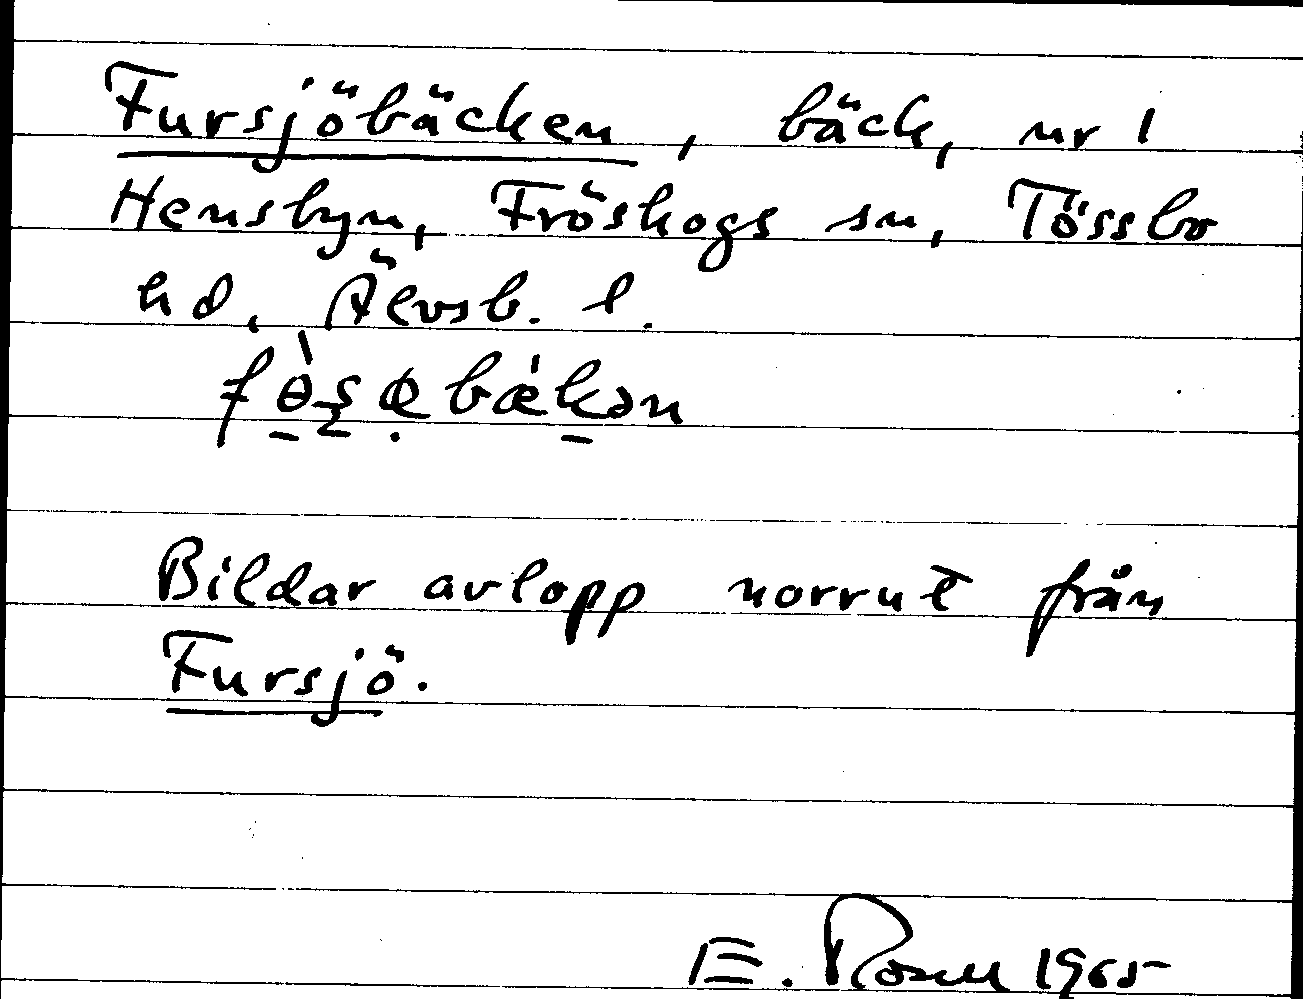 Fursjöbäcken, bäck, nr 1
Hensbyn, Fröskogs sn, Tössbo
hd, Älvsb. l.
fɵ̀ʂœbæ̀kən
Bildar avlopp norrut från
Fursjö.
E. Rosell 1965